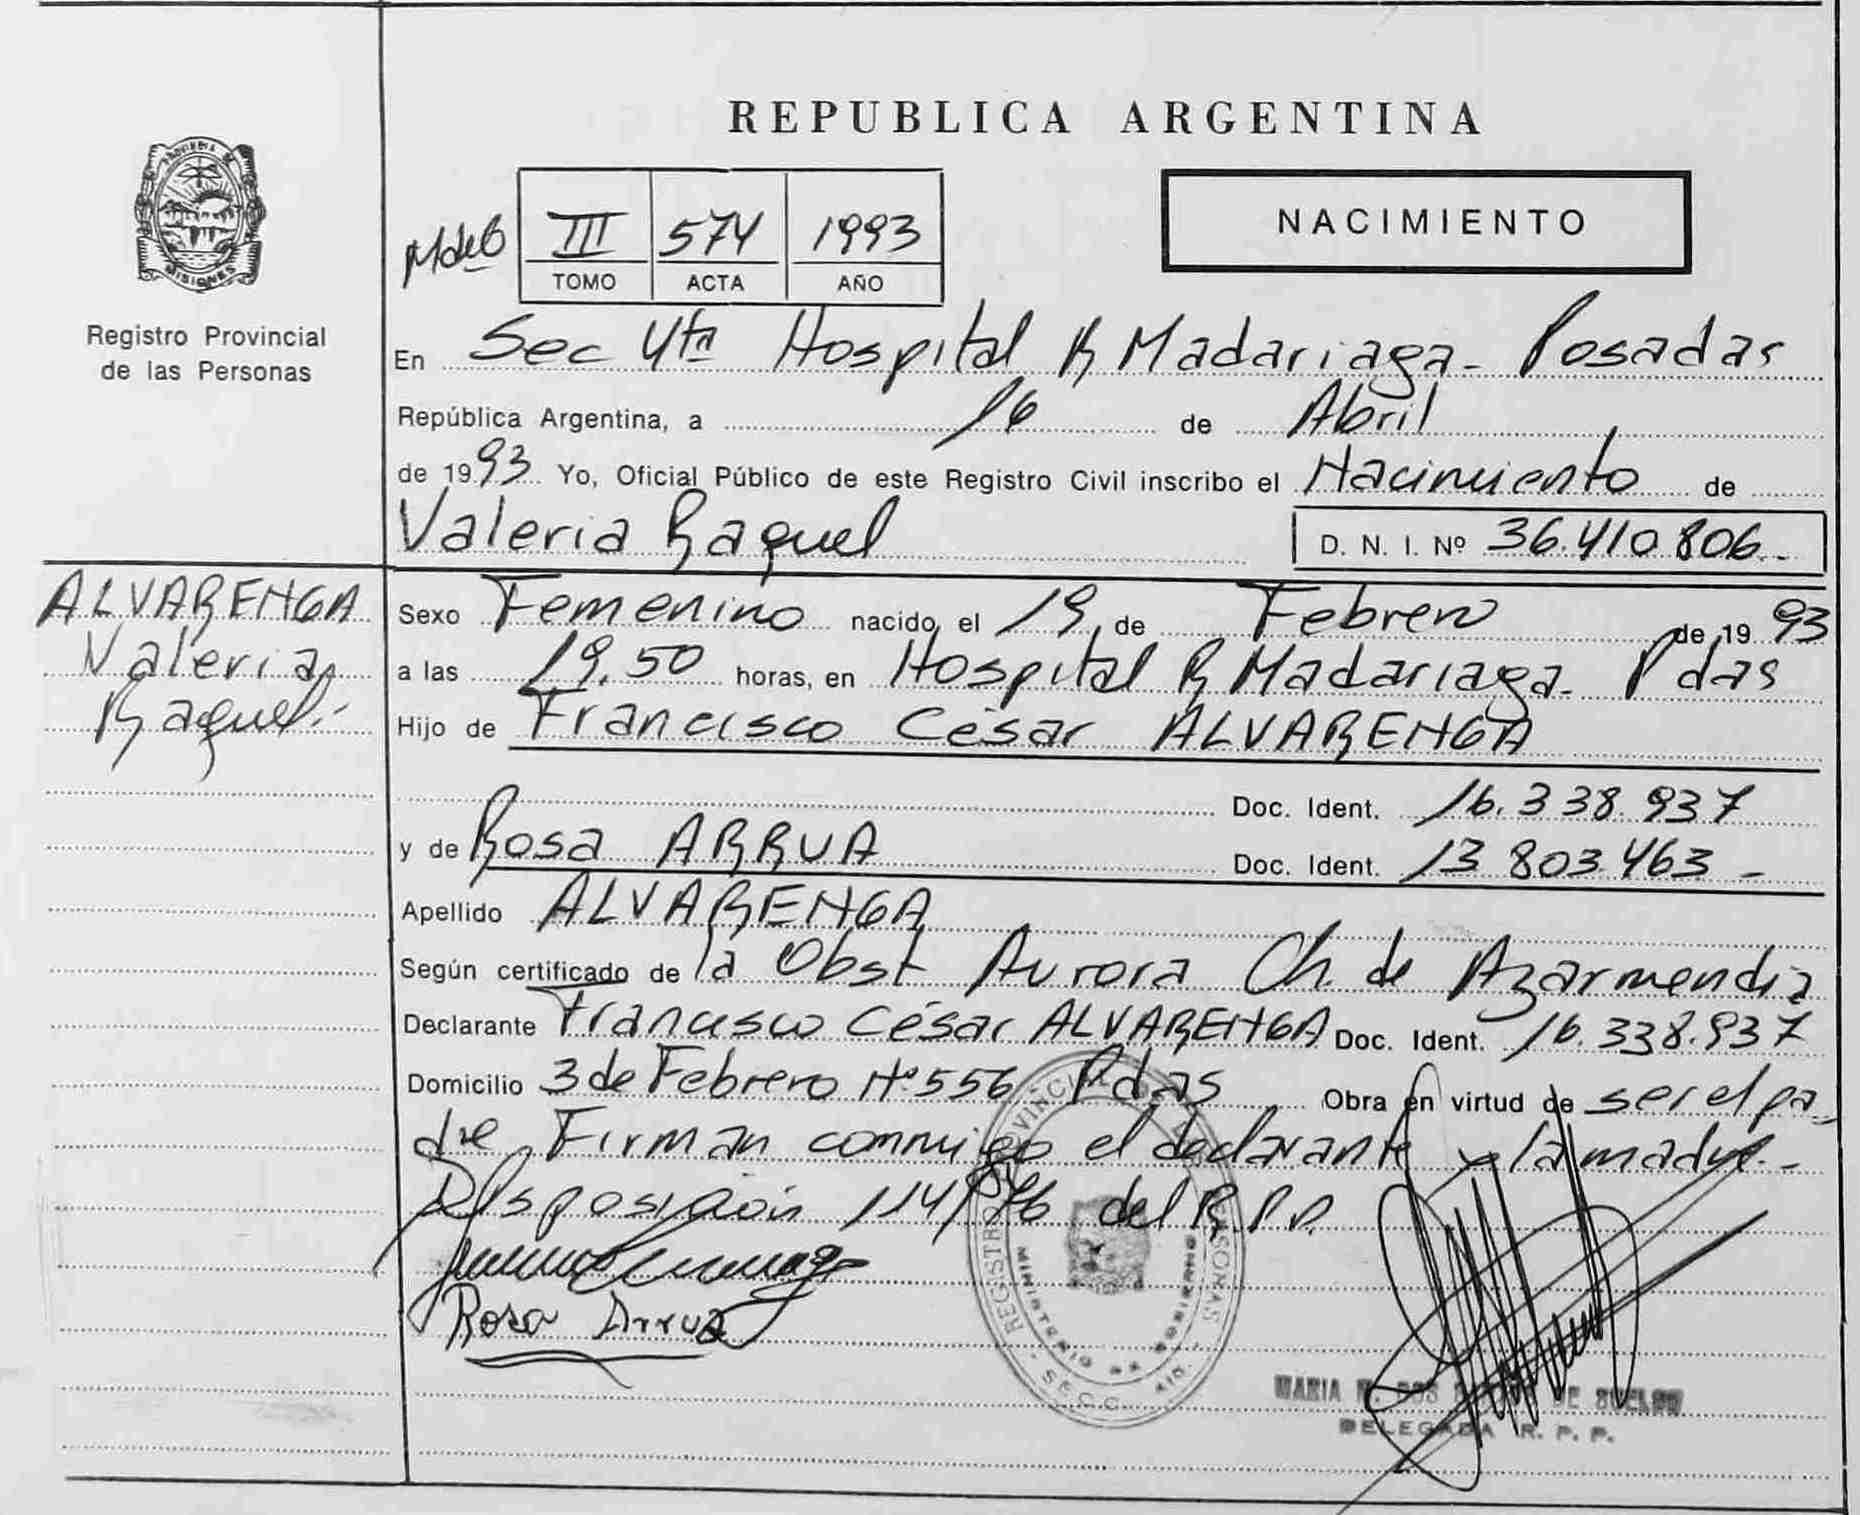 REPUBLICA ARGENTINA
PROVINCIA DE
MISIONES
Registro Provincial
de las Personas
III 574 1993
TOMO ACTA AÑO
NACIMIENTO
En Sec 4ta Hospital R Madariaga - Posadas
República Argentina, a 16 de Abril
de 1993 Yo, Oficial Público de este Registro Civil inscribo el Nacimiento de
Valeria Raquel D. N. I. Nº 36.410.806.-
ALVARENGA
Valeria
Raquel.-
Sexo Femenino nacido el 19 de Febrero de 1993
a las 19.50 horas, en Hospital R Madariaga - Pdas
Hijo de Francisco César ALVARENGA
Doc. Ident. 16.338.937
y de Rosa ARRUA Doc. Ident. 13 803.463 -
Apellido ALVARENGA
Según certificado de la Obst Aurora Ch. de Azarmendia
Declarante Francisco César ALVARENGA Doc. Ident. 16.338.937
Domicilio 3 de Febrero Nº 556 Pdas Obra en virtud de ser el pa-
dre Firman conmigo el declarante y la madre -
Disposición 114/76 del R.P.P.
Rosa Arrua
REGISTRO PROVINCIAL DE LAS PERSONAS
MINISTERIO DE GOBIERNO
SECC.
MARIA DOS DE
DELEGADA R. P. P.